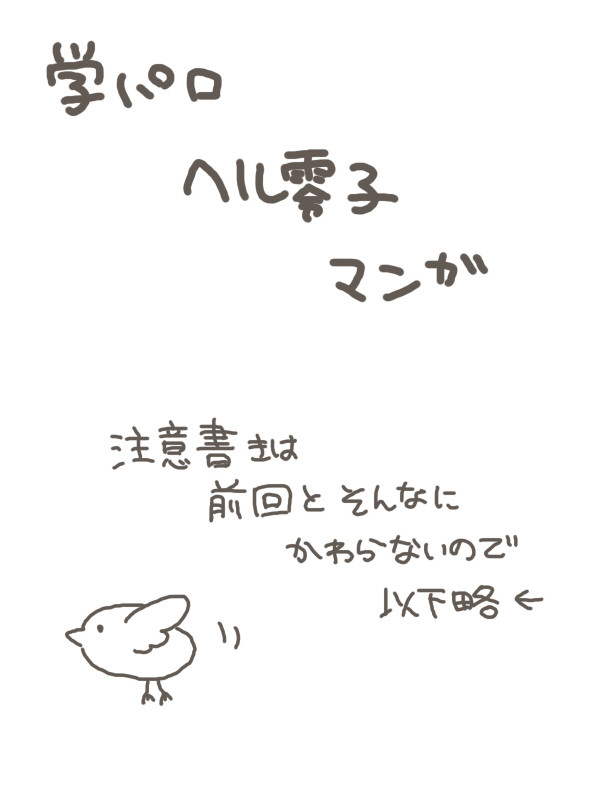 学パロ
ヘル零子
マンガ
注意書きは
前回とそんなに
かわらないので
以下略←